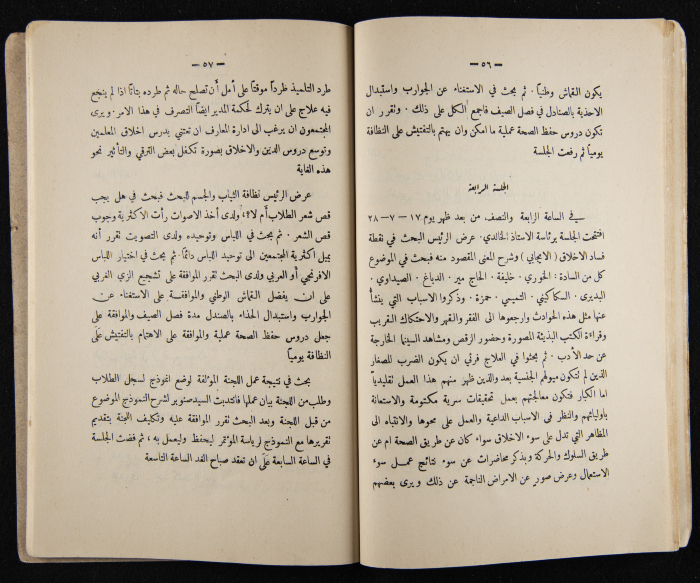 — ٥٦ —
يكون القماش وطنياً. ثم بحث في الاستغناء عن الجوارب واستبدال
الاحذية بالصنادل في فصل الصيف فاجمع الكل على ذلك. وتقرر ان
تكون دروس حفظ الصحة عملية ما امكن وان يهتم بالتفتيش على النظافة
يومياً ثم رفعت الجلسة
الجلسة الرابعة
في الساعة الرابعة والنصف من بعد ظهر يوم ١٧ — ٧ — ٢٨
افتتحت الجلسة برئاسة الاستاذ الخالدي. عرض الرئيس البحث في نقطة
فساد الاخلاق (الايجابي) وشرح المعنى المقصود منه فبحث في الموضوع
كل من السادة: الخوري. خليفة. الحاج مير. الدباغ. الصيداوي.
البديري. السكاكيني. التميمي. حمزة. وذكروا الاسباب التي ينشأ
عنها مثل هذه الحوادث وارجعوها الى الفقر والقهر والاحتكاك القريب
وقراءة الكتب البذيئة المصورة وحضور الرقص ومشاهد السينما الخارجة
عن حد الأدب. ثم بحثوا في العلاج فرئي ان يكون الضرب للصغار
الذين لم تتكون ميولهم الجنسية بعد والذين ظهر منهم هذا العمل تقليدياً
اما الكبار فتكون معالجتهم بعمل تحقيقات سرية مكتومة والاستعانة
باوليائهم والنظر في الاسباب الداعية والعمل على محوها والانتباه الى
المظاهر التي تدل على سوء الاخلاق سواء كان عن طريق الصحة ام عن
طريق السلوك والحركة وبذكر محاضرات عن سوء نتائج عمل سوء
الاستعمال وعرض صور عن الامراض الناجمة عن ذلك ويرى بعضهم
— ٥٧ —
طرد التلميذ طرداً موقتاً على أمل أن تصلح حاله ثم طرده بتاتاً اذا لم ينجع
فيه علاج على ان يترك لحكمة المدير ايضاً التصرف في هذا الامر. ويرى
المجتمعون ان يرغب الى ادارة المعارف ان تعتني بدرس اخلاق المعلمين
وتوسع دروس الدين والاخلاق بصورة تكفل بعض الترقي والتأثير نحو
هذه الغاية
عرض الرئيس نظافة الثياب والجسم للبحث فبحث في هل يجب
قص شعر الطلاب أم لا؟، ولدى أخذ الاصوات رأت الاكثرية وجوب
قص الشعر. ثم بحث في اللباس وتوحيده ولدى التصويت تقرر أنه
بميل اكثرية المجتمعين الى توحيد اللباس دائماً. ثم بحث في اختيار اللباس
الافرنجي أو العربي ولدى البحث تقرر الموافقة على تشجيع الزي الغربي
على ان يفضل القماش الوطني والموافقة على الاستغناء عن
الجوارب واستبدال الحذاء بالصندل مدة فصل الصيف والموافقة على
جعل دروس حفظ الصحة عملية والموافقة على الاهتمام بالتفتيش على
النظافة يومياً
بحث في نتيجة عمل اللجنة المؤلفة لوضع انموذج لسجل الطلاب
وطلب من اللجنة بيان عملها فانتدبت السيد صنوبر لشرح النموذج الموضوع
من قبل اللجنة وبعد البحث تقرر الموافقة عليه وتكليف اللجنة بتقديم
تقريرها مع النموذج لرياسة المؤتمر ليحفظ وليعمل به، ثم فضت الجلسة
في الساعة السابعة على ان تعقد صباح الغد الساعة التاسعة